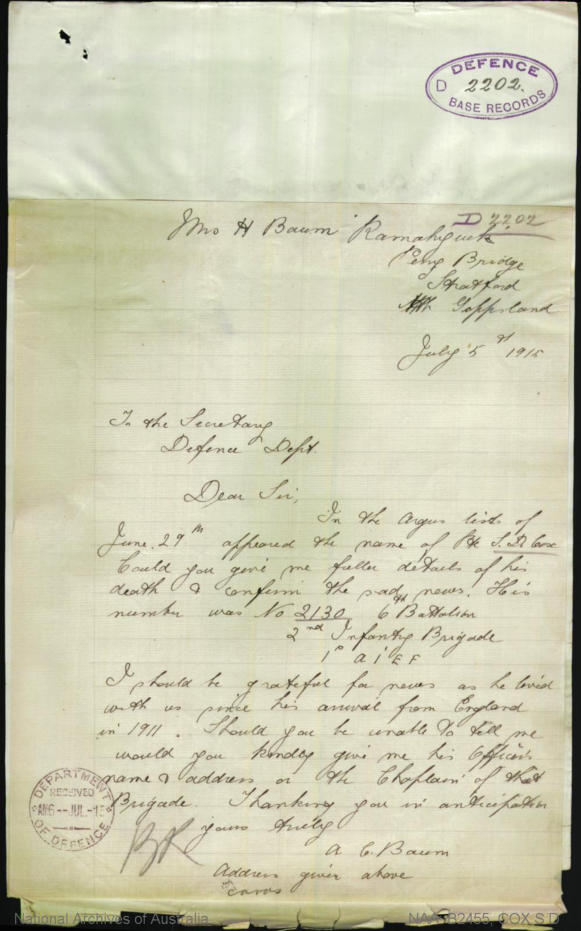 DEFENCE
D 2202.
BASE RECORDS
D 2202
Mrs H Baum
Perry Bridge
Stratford
Nth Gippsland
July 5th 1915
To the Secretary
Defence Dept.
Dear Sir,
In the Argus lists of
June 29th appeared the name of Pte S. D. Cox
Could you give me fuller details of his
death & confirm the sad news. His
number was No 2130 6th Battalion
2nd Infantry Brigade
1st A I E F
I should be grateful for news as he lived
with us since his arrival from England
in 1911. Should you be unable to tell me
would you kindly give me his Officers
name & address or the Chaplain of that
Brigade. Thanking you in anticipation
yours truly
A C. Baum
Address given above
DEPARTMENT
RECEIVED
6--JUL-15
OF DEFENCE
BR
National Archives of Australia
NAA: B2455, COX S D